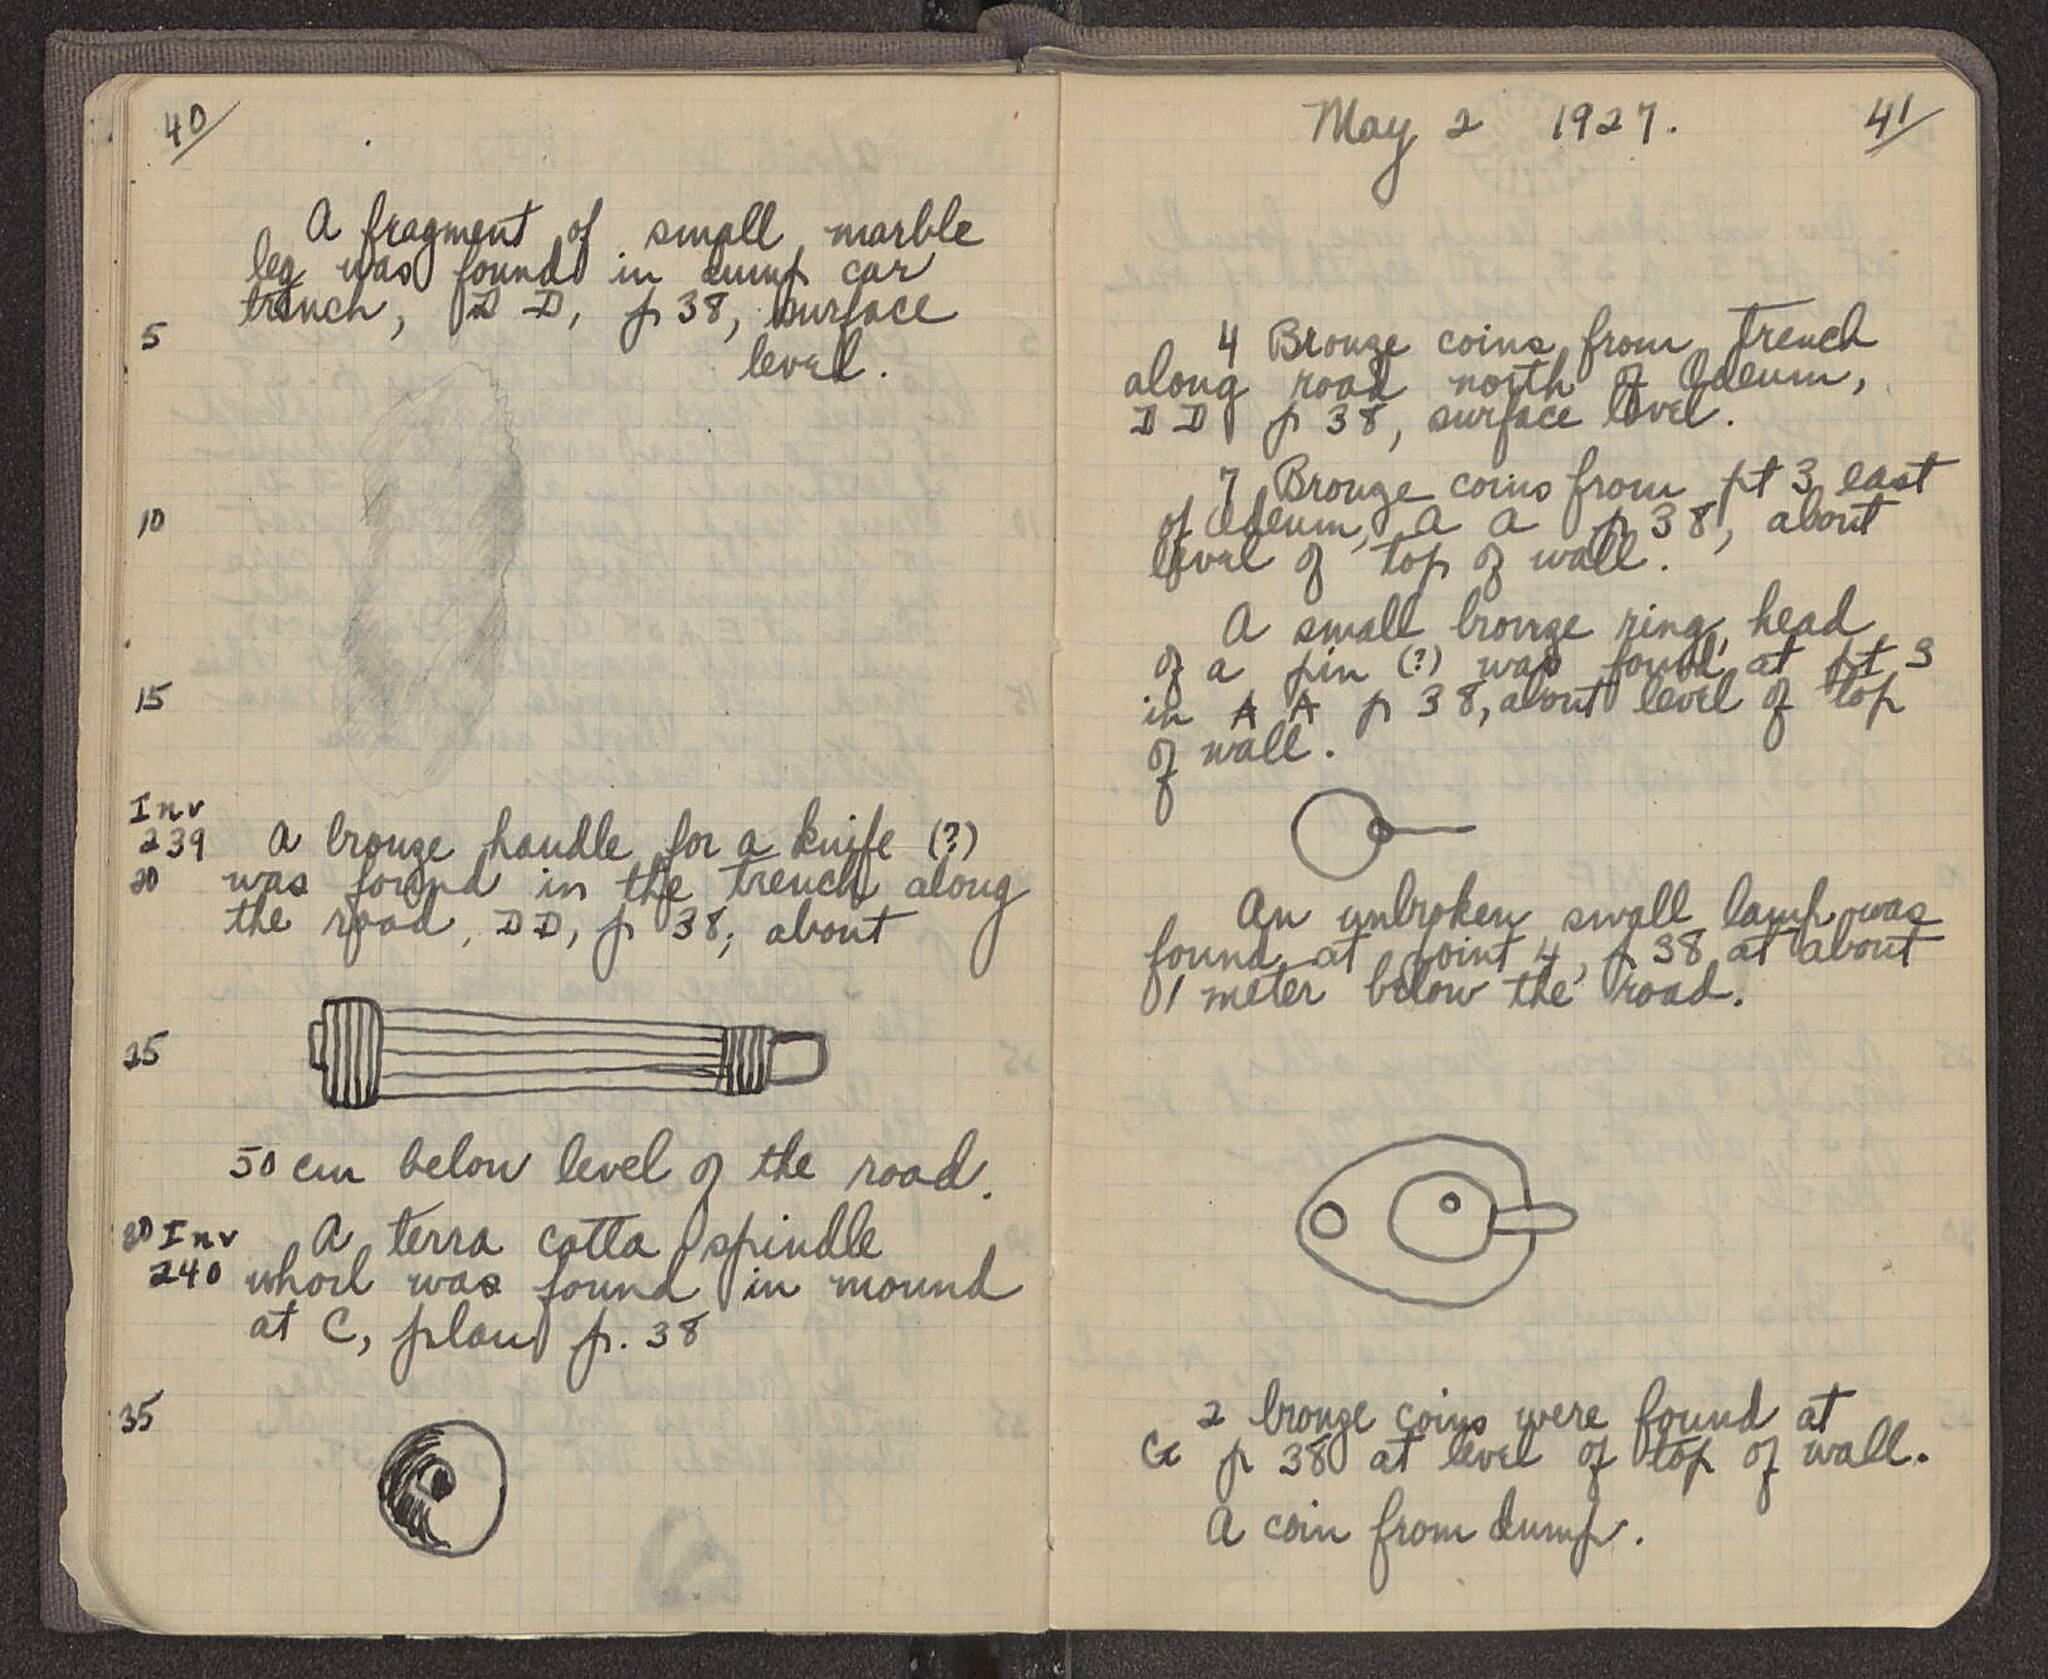 40
A fragment of small marble
leg was found in dump car
trench, D D, p 38, surface
5
level.
10
15
Inv
239 A bronze handle for a knife (?)
20 was found in the trench along
the road, DD, p 38, about
25
50 cm below level of the road.
30 Inv A terra cotta spindle
240 whorl was found in mound
at C, plan p. 38
35
May 2 1927. 41
4 Bronze coins from trench
along road north of Odeum,
D D p 38, surface level.
7 Bronze coins from pt 3 east
of Odeum, A A p 38, about
level of top of wall.
A small bronze ring, head
of a pin (?) was found at pt 3
in A A p 38, about level of top
of wall.
An unbroken small lamp was
found at point 4, p 38 at about
1 meter below the road.
2 bronze coins were found at
p 38 at level of top of wall.
A coin from dump.